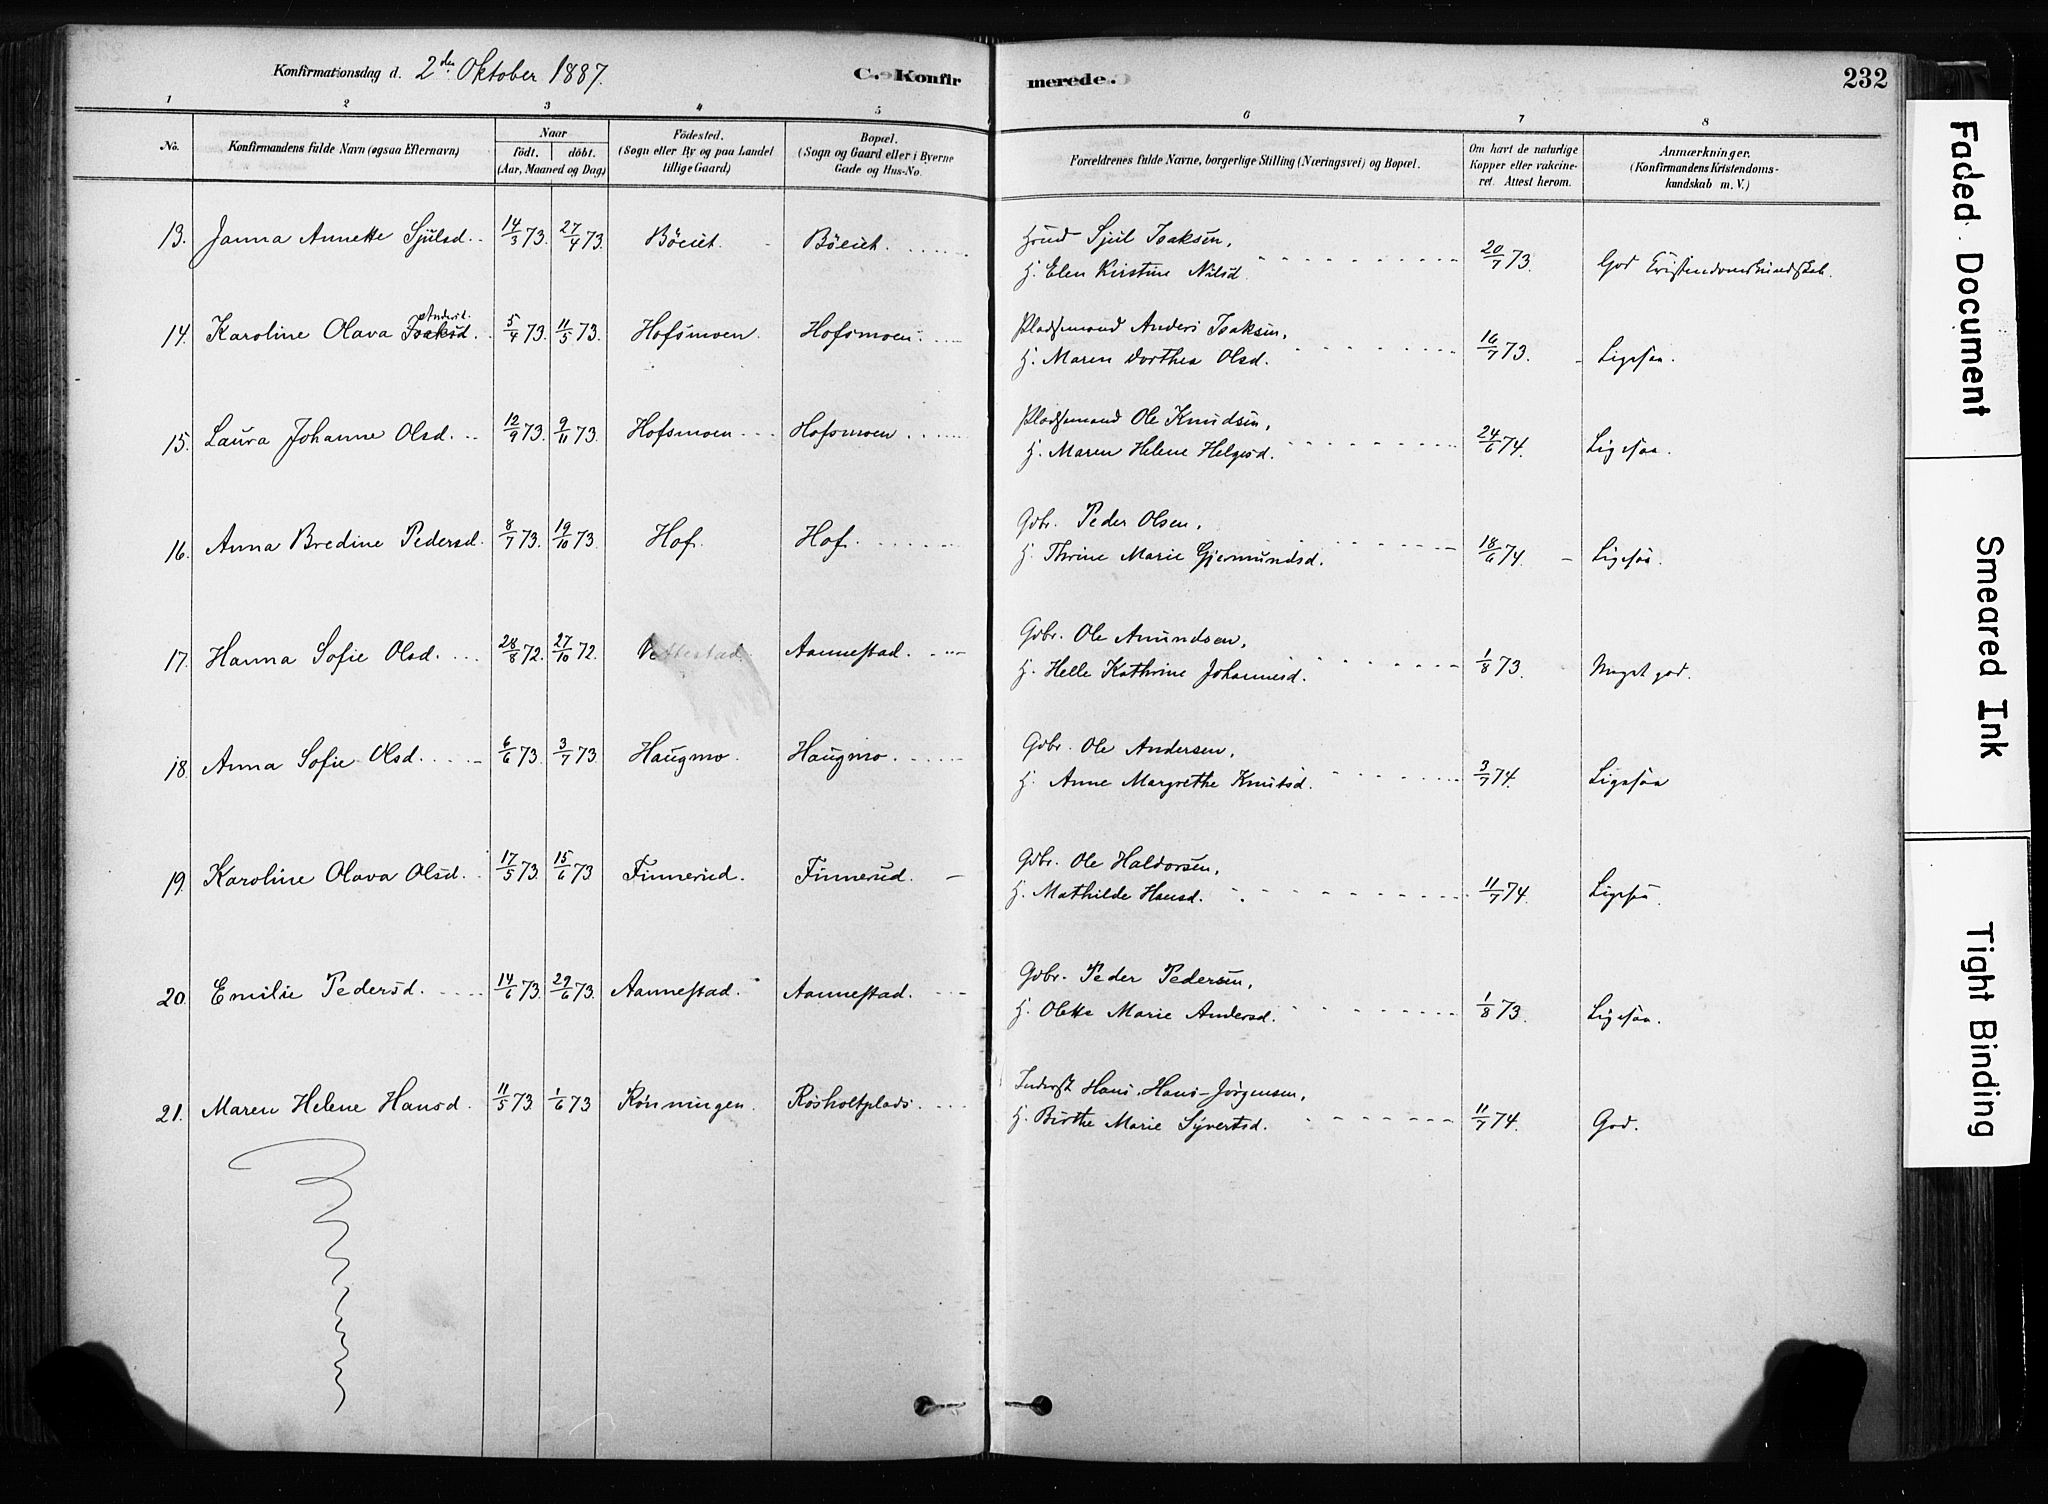 Konfirmationsdag d. 2den Oktober 1887. C. Konfirmerede. 232
1 2 3 4 5 6 7 8
No. Konfirmandens fulde Navn (ogsaa Efternavn) Naar födt. döbt. (Aar, Maaned og Dag) Födested. (Sogn eller By og paa Landet tillige Gaard) Bopæl. (Sogn og Gaard eller i Byerne Gade og Hus-No. Forældrenes fulde Navne, borgerlige Stilling (Næringsvei) og Bopæl. Om havt de naturlige Kopper eller vakcineret. Attest herom. Anmærkninger. (Konfirmandens Kristendomskundskab m. V.)
13. Janna Annette Sjulsd. 14/3 73. 27/4 73. Böeiet Böeiet Sjul Isaksen, H. Elen Kirstine Nilsd 20/7 73. God Kristendomskundskab.
14. Karoline Olava Isaksd. Andersd. 5/4 73. 11/5 73. Hofsmoen. Hofsmoen. Pladsemand Anders Isaksen, H. Maren Dorthea Olsd. 16/7 73. Ligesaa.
15. Laura Johanne Olsd. 12/9 73. 9/11 73. Hofsmoen Hofsmoen Pladsemand Ole Knudsen, H. Maren Helene Helgesd. 24/6 74. Ligesaa.
16. Anna Bredine Pedersd. 8/7 73. 19/10 73. Hof. Hof. Gdbr. Peder Olsen, H. Thrine Marie Gjermundsd. 18/6 74. Ligesaa.
17. Hanna Sofie Olsd. 28/8 72. 27/10 72. Vettestad Aannestad. Gdbr. Ole Amundsen, H. Helle Kathrine Johannesd. 1/8 73. Meget god.
18. Anna Sofie Olsd. 6/6 73. 3/7 73. Haugmo. Haugmo. Gdbr. Ole Andersen, H. Anne Margrethe Knutsd. 3/7 74. Ligesaa
19. Karoline Olava Olsd. 17/5 73. 15/6 73 Finnerud. Finnerud. Gdbr. Ole Haldorsen, H. Mathilde Hansd. 11/7 74. Ligesaa.
20. Emilie Pedersd. 14/6 73. 29/6 73. Aannestad. Aannestad. Gdbr. Peder Pedersen, H. Olette Marie Andersd. 1/8 73. Ligesaa.
21. Maren Helene Hansd. 11/5 73. 1/6 73 Rönningen. Rösholtplads. Inderst Hans Hans-Jörgensen, H. Birthe Marie Syvertsd. 11/7 74. God.
Faded Document
Smeared Ink
Tight Binding